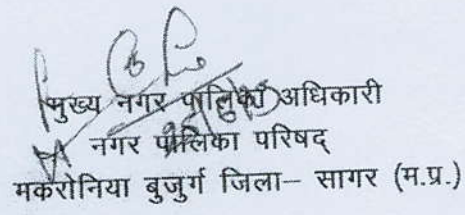 मुख्य नगर पालिका अधिकारी
नगर पालिका परिषद्
मकरोनिया बुजुर्ग जिला– सागर (म.प्र.)